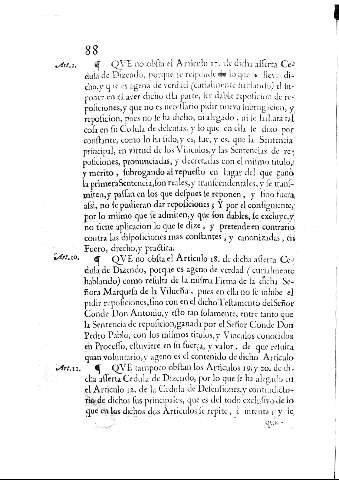 88
Art.9. ¶ QVE no obsta el Articulo 17. de dicha asserta Ce-
dula de Dizendo, porque se responde lo que lleva di-
cho, y que es ageno de verdad (curialmente hablando) el su-
poner en el aver dicho esta parte, ser dable reposicion de re-
posiciones, y que no es necessario pidir nueva interdiccion, y
reposicion, pues no se ha dicho, ni alegado, ni se hallara tal
cosa en su Cedula de defensas, y lo que en ella se dixo por
constante, como lo ha sido, y es, fue, y es, que la Sentencia
principal, en virtud de los Vinculos, y las Sentencias de re-
posiciones, pronunciadas, y decretadas con el mismo titulo,
y merito, subrogando al repuesto en lugar del que ganò
la primera Sentencia, son reales, y transcendentales, y se trans-
miten, y passan en los que despues se reponen, y sino fuera
assi, no se pudieran dar reposiciones; Y por el consiguiente,
por lo mismo que se admiten, y que son dables, se excluye, y
no tiene aplicacion lo que se dize, y pretende en contrario
contra las disposiciones mas constantes, y canonizadas, en
Fuero, drecho, y practica.
Art.10. ¶ QVE no obsta el Articulo 18. de dicha asserta Ce-
dula de Dizendo, porque es ageno de verdad (curialmente
hablando) como resulta de la misma Firma de la dicha Se-
ñora Marquesa de la Vilueña, pues en ella no se inhibe el
pidir reposiciones, sino con en el dicho Testamento del Señor
Conde Don Antonio, y esto tan solamente, entre tanto que
la Sentencia de reposicion, ganada por el Señor Conde Don
Pedro Pablo, con los mismos titulos, y Vinculos conocidos
en Processo, estuviere en su fuerça, y valor, de que resulta
quan voluntario, y ageno es el contenido de dicho Articulo
Art.11. ¶ QVE tampoco obstan los Articulos 19. y 20. de di-
cha asserta Cedula de Dizendo, por lo que se ha alegado en
el Articulo 12. de la Cedula de Defensiones, y contradicto-
rio de dichos sus principales, que es del todo exclusivo de lo
que en los dichos dos Articulos se repite, è intenta; y se
que